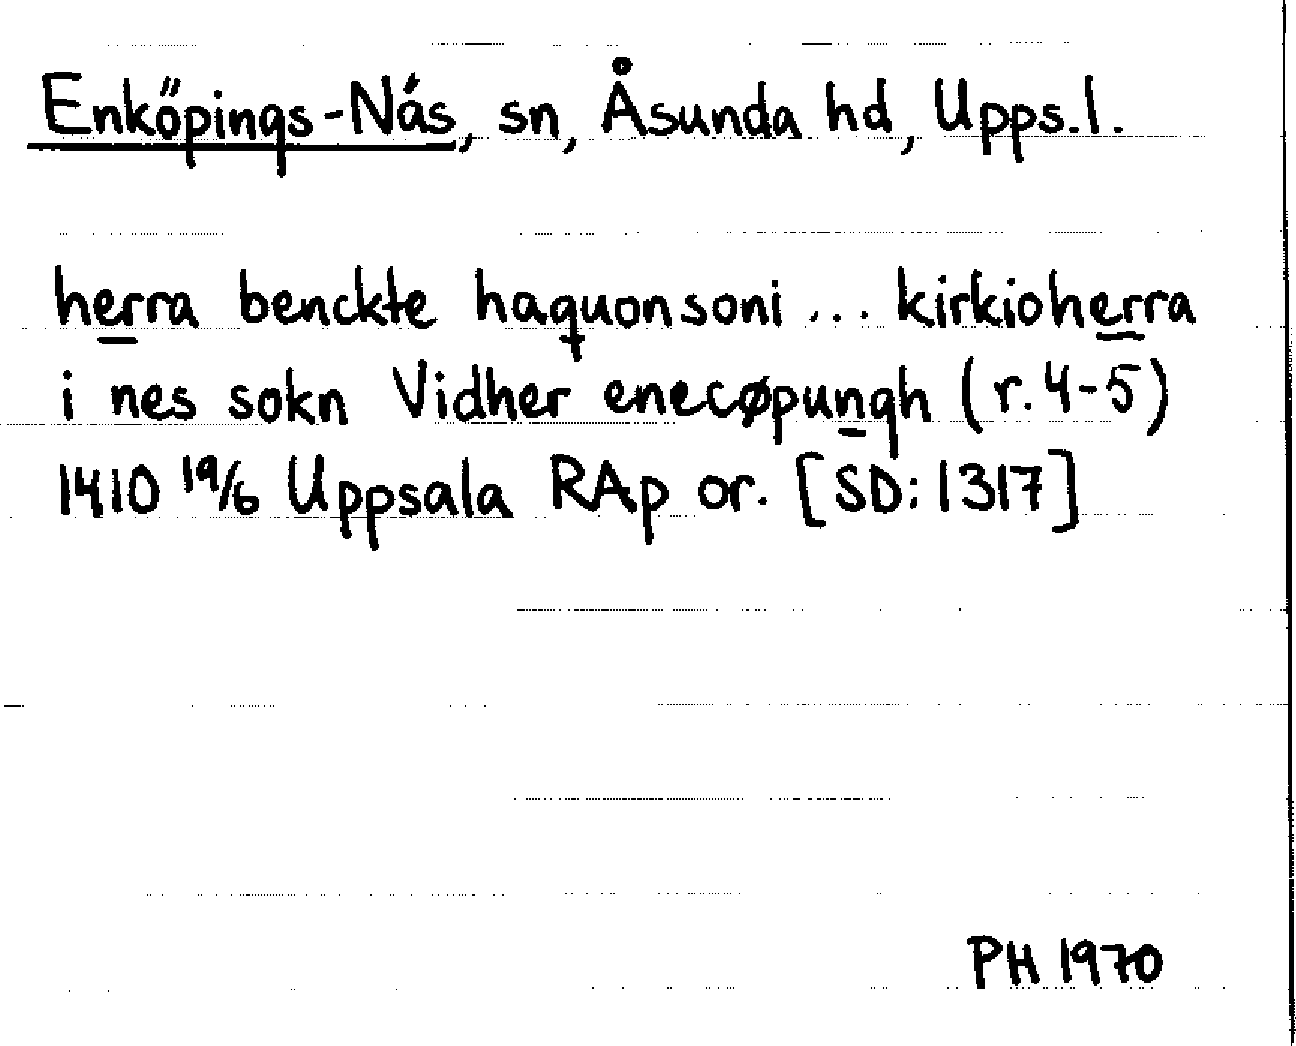 Enköpings-Näs, sn, Åsunda hd, Upps.l.
herra benckte haquonsoni ... kirkioherra
i nes sokn Vidher enecøpungh (r. 4-5)
1410 19/6 Uppsala RAp or. [SD: 1317]
PH 1970